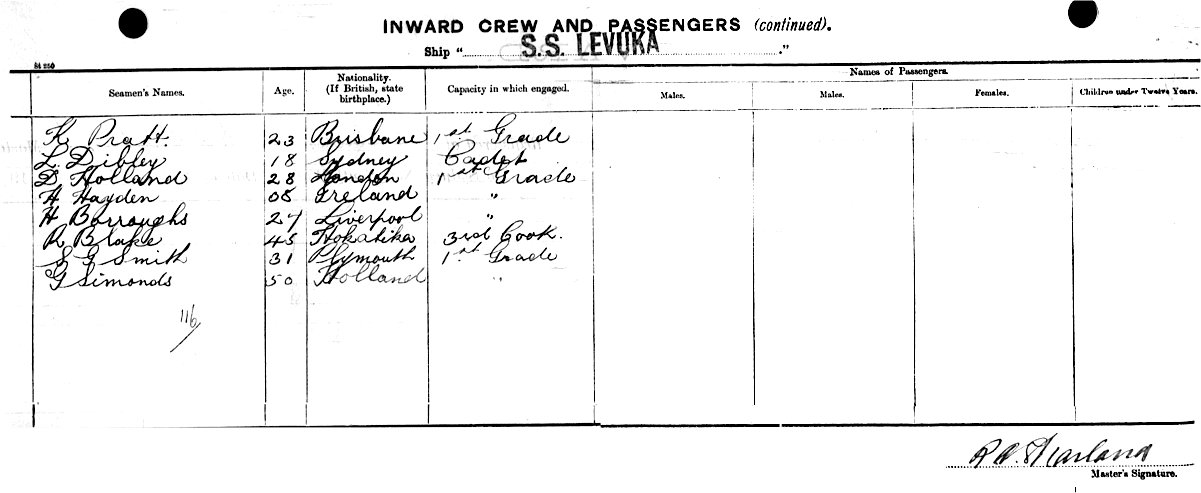 INWARD CREW AND PASSENGERS (continued).
Ship "S.S. LEVUKA."
St 250
Names of Passengers.
Seamen's Names. Age. Nationality. (If British, state birthplace.) Capacity in which engaged. Males. Males. Females. Children under Twelve Years.
K Pratt. 23 Brisbane 1st Grade
L. Dibley 18 Sydney Cadet
D Holland 28 London 1st Grade
H Hayden 05 Ireland "
H Borroughs 27 Liverpool "
R Blake 45 Hokatika 3rd Cook.
S G Smith 31 Plymouth 1st Grade
G Simonds 50 Holland "
116/
Master's Signature.